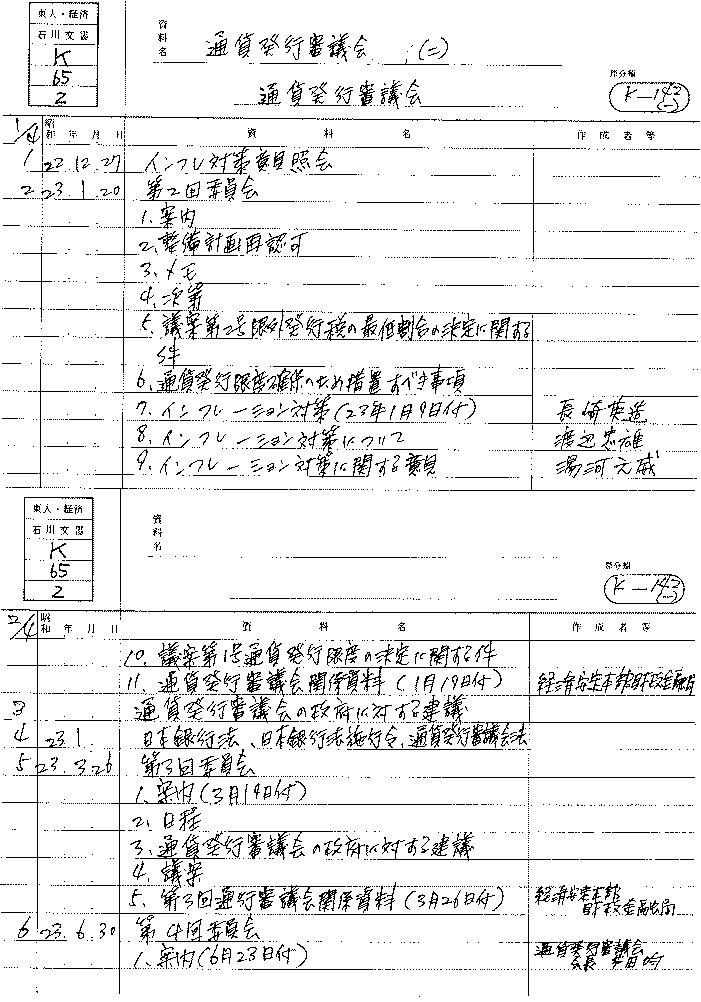 東大・経済
石川文器
K
65
2
資料名
通貨発行審議会 (二)
通貨発行審議会
原分類
K-142
1/4
昭和 年 月 日 資 料 名 作成者等
1 22.12.27 インフレ対策意見照会
2 23.1.20 第2回委員会
1. 案内
2. 整備計画再認可
3. メモ
4. 次第
5. 議案第2号限外発行税の最低割合の決定に関する
件
6. 通貨発行限度確保のため措置すべき事項
7. インフレーション対策(23年1月9日付) 長崎英造
8. インフレーション対策について 渡辺忠雄
9. インフレーション対策に関する意見 湯河元威
東大・経済
石川文器
K
65
2
資料名
原分類
K-143
2/4
昭和 年 月 日 資 料 名 作成者等
10. 議案第1号通貨発行限度の決定に関する件
11. 通貨発行審議会関係資料(1月19日付) 経済安定本部財政金融局
3 通貨発行審議会の政府に対する建議
4 23.1. 日本銀行法、日本銀行法施行令、通貨発行審議会法
5 23.3.26 第3回委員会
1. 案内(3月19日付)
2. 日程
3. 通貨発行審議会の政府に対する建議
4. 議案
5. 第3回通行審議会関係資料(3月26日付) 経済安定本部
財政金融局
6 23.6.30 第4回委員会
1. 案内(6月23日付) 通貨発行審議会
会長